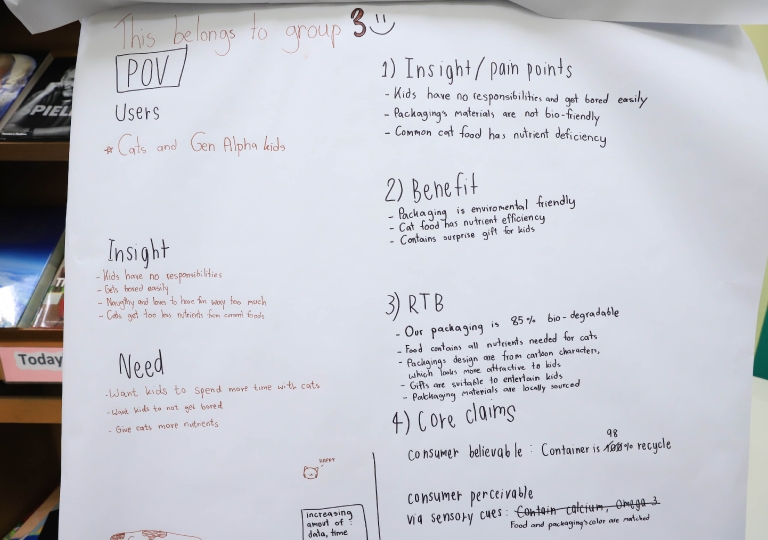 This belongs to group 3
POV
Users
Cats and Gen Alpha kids
Insight
- Kids have no responsibilities
- Gets bored easily
- Naughty and loves to have fun way too much
- Cats get too less nutrients from current foods
Need
- Want kids to spend more time with cats
- Want kids to not get bored
- Give cats more nutrients
HAPPY
increasing
amout of :
data, time
1) Insight/pain points
- Kids have no responsibilities and get bored easily
- Packagings materials are not bio-friendly
- Common cat food has nutrient deficiency
2) Benefit
- Packaging is enviromental friendly
- Cat food has nutrient efficiency
- Contains surprise gift for kids
3) RTB
- Our packaging is 85% bio-degradable
- Food contains all nutrients needed for cats
- Packgings design are from cartoon characters,
which looks more attractive to kids
- Gifts are suitable to entertain kids
- Packaging materials are locally sourced
4) Core claims
98
consumer believable : Container is 100% recycle
consumer perceivable
via sensory cues : Contain calcium, Omega 3
Food and packaging's color are matched
SPIEL
Today